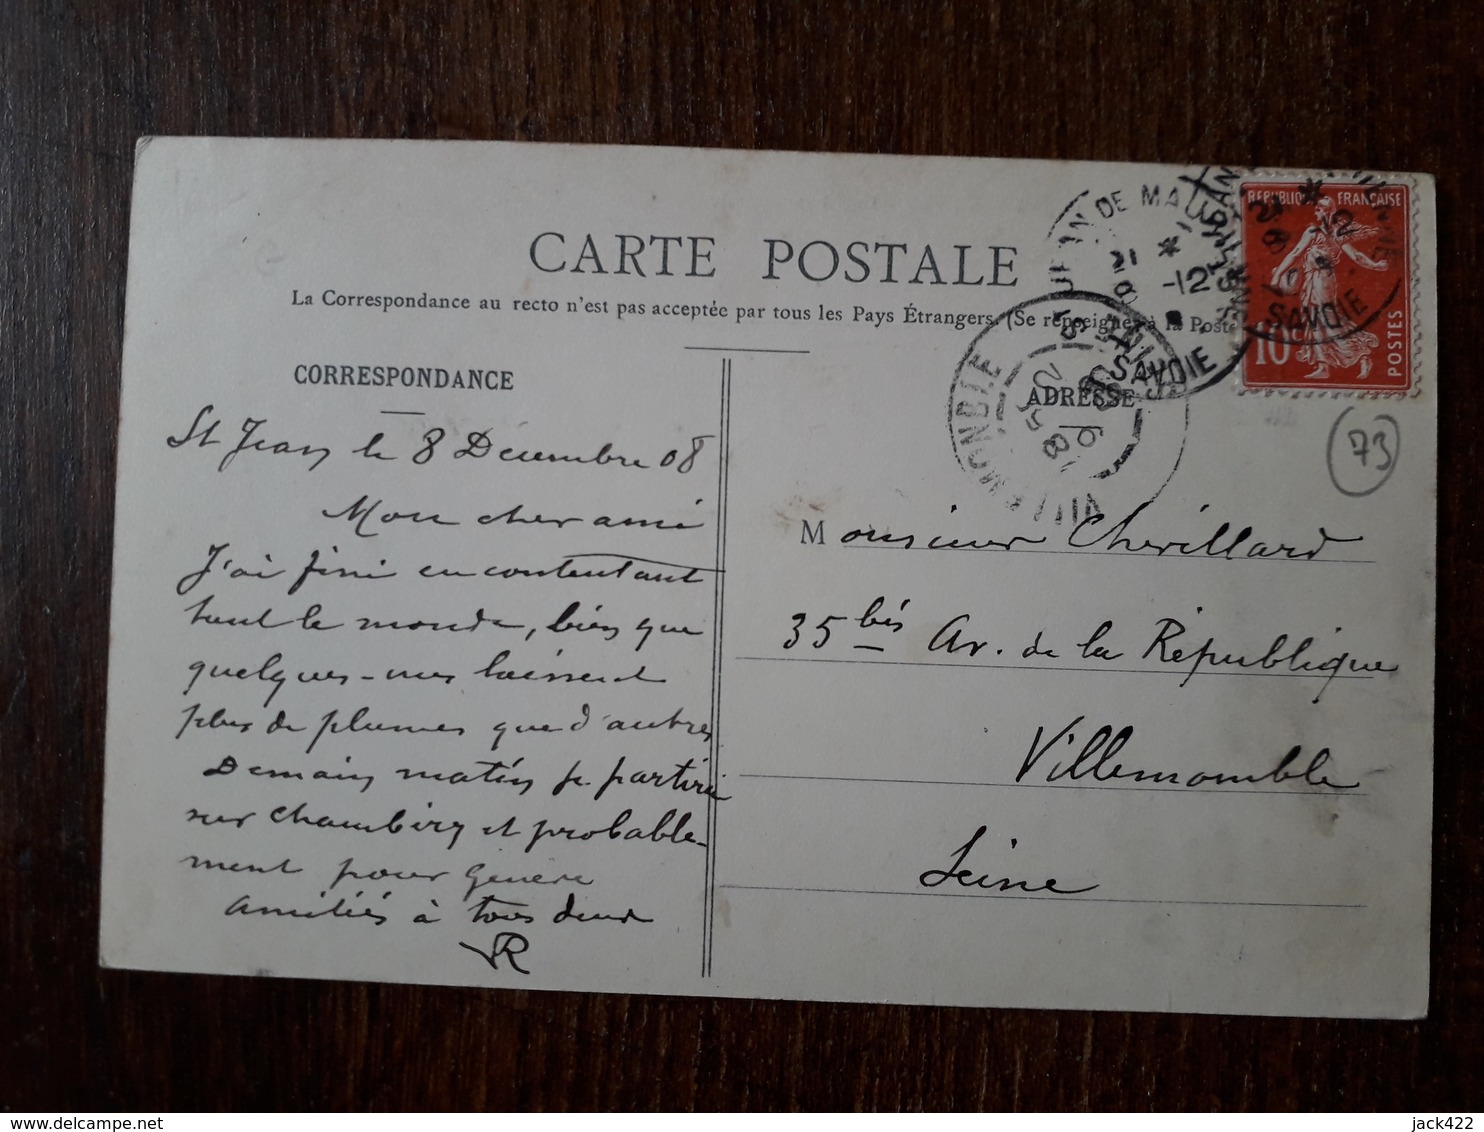 CARTE POSTALE
La Correspondance au recto n'est pas acceptée par tous les Pays Étrangers. (Se renseigner à la Poste
CORRESPONDANCE
St Jean le 8 Décembre 08
Mon cher ami
J'ai fini en contentant
tout le monde, bien que
quelques-uns laissent
plus de plumes que d'autres
Demain matin je partirai
sur Chambéry et probable-
ment pour Genève
Amitiés à tous deux
VR
REPUBLIQUE FRANÇAISE
10c
POSTES
JEAN DE MAU
SAVOIE
SAVOIE
VILLEMOMBLE
ADRESSE
73
Monsieur Chevillard
35 bis Av. de la République
Villemomble
Seine
delcampe.net
jack422